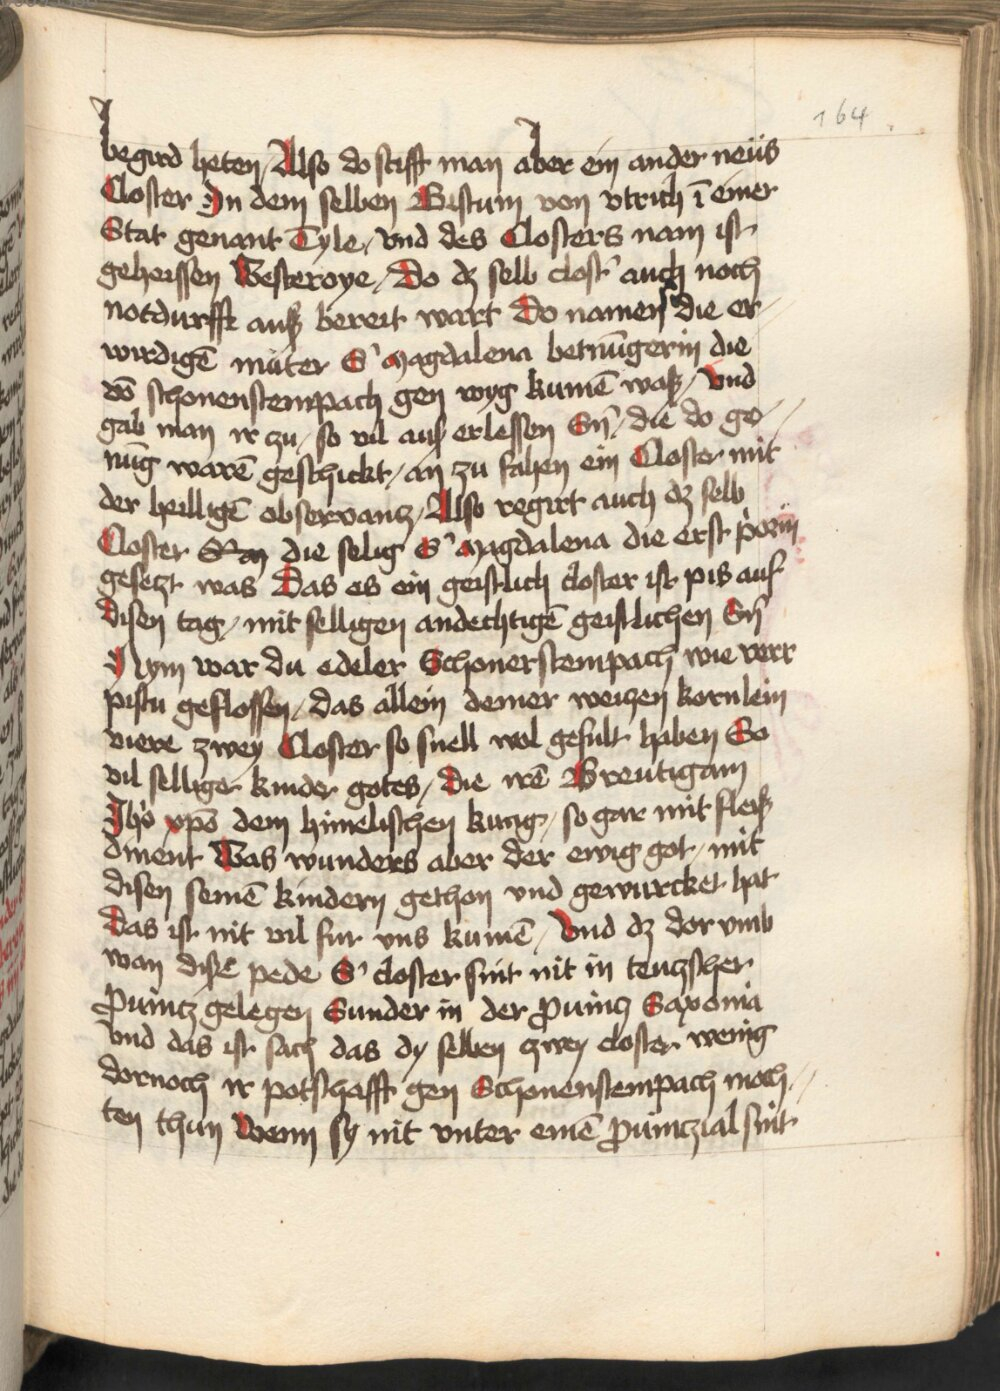 164
begird heten / Also do stifft man aber ein ander neüs
Closter In dem selben Bistum von vtrich ī einer
Stat genant Tyle / vnd des Closters nam ist
geheissen Westeroye / Do dz selb clost' auch noch
notdurfft auß bereit wart Do namen sie die er-
wirdigē muter S' Magdalena betnūgerin die
vō schonenstempach gen wyg kumē waß / Vnd
gab man ir zu / so vil auß erlessen Sn̄ / die do ge-
nūg warē geschickt / an zu fahen ein Closter mit
der heilligē obseruantz / Also regirt auch dz selb
Closter die selig S' Magdalena die erst p̄orin
gesetzt was Das es ein geistlich closter ist pis auf
disen tag / mit selligen andechtigē geistlichen Sn̄
Nym war du edeler Schonerstempach wie verr
pistu geflossen / das allein deiner weitzen kornlein
viere zwey Closter so snell wol gefult haben So
vil selliger kinder gotes / die irē Breutigam
Jhū xpō dem himelischen kunig / so gar mit fleiß
dinent Was wunders aber der ewig got / mit
disen seinē kindern gethon vnd gewurcket hat
Das ist nit vil fur vns kumē / Vnd dz dor vmb
wan diße pede S' closter sint nit in teutzscher
Prouintz gelegen Sunder in der Prouintz Saxonia
Vnd das ist sach das dy selben zwey closter wenig
dornoch ir potschafft gen Schonenstempach moch-
ten thun Wenn sy nit vnter einē prouintzial sint